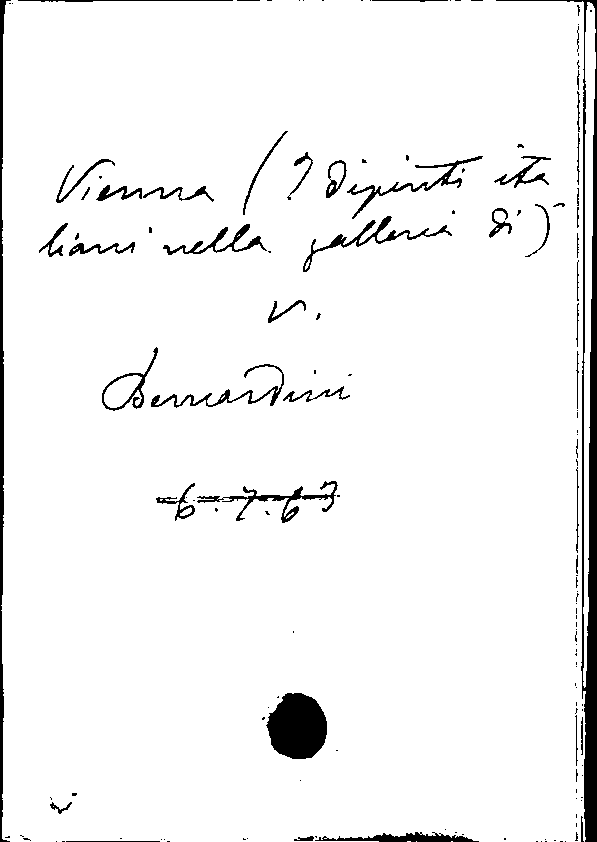 Vienna (I dipinti ita
liani nella galleria di)
v.
Bernardini
6.7.63